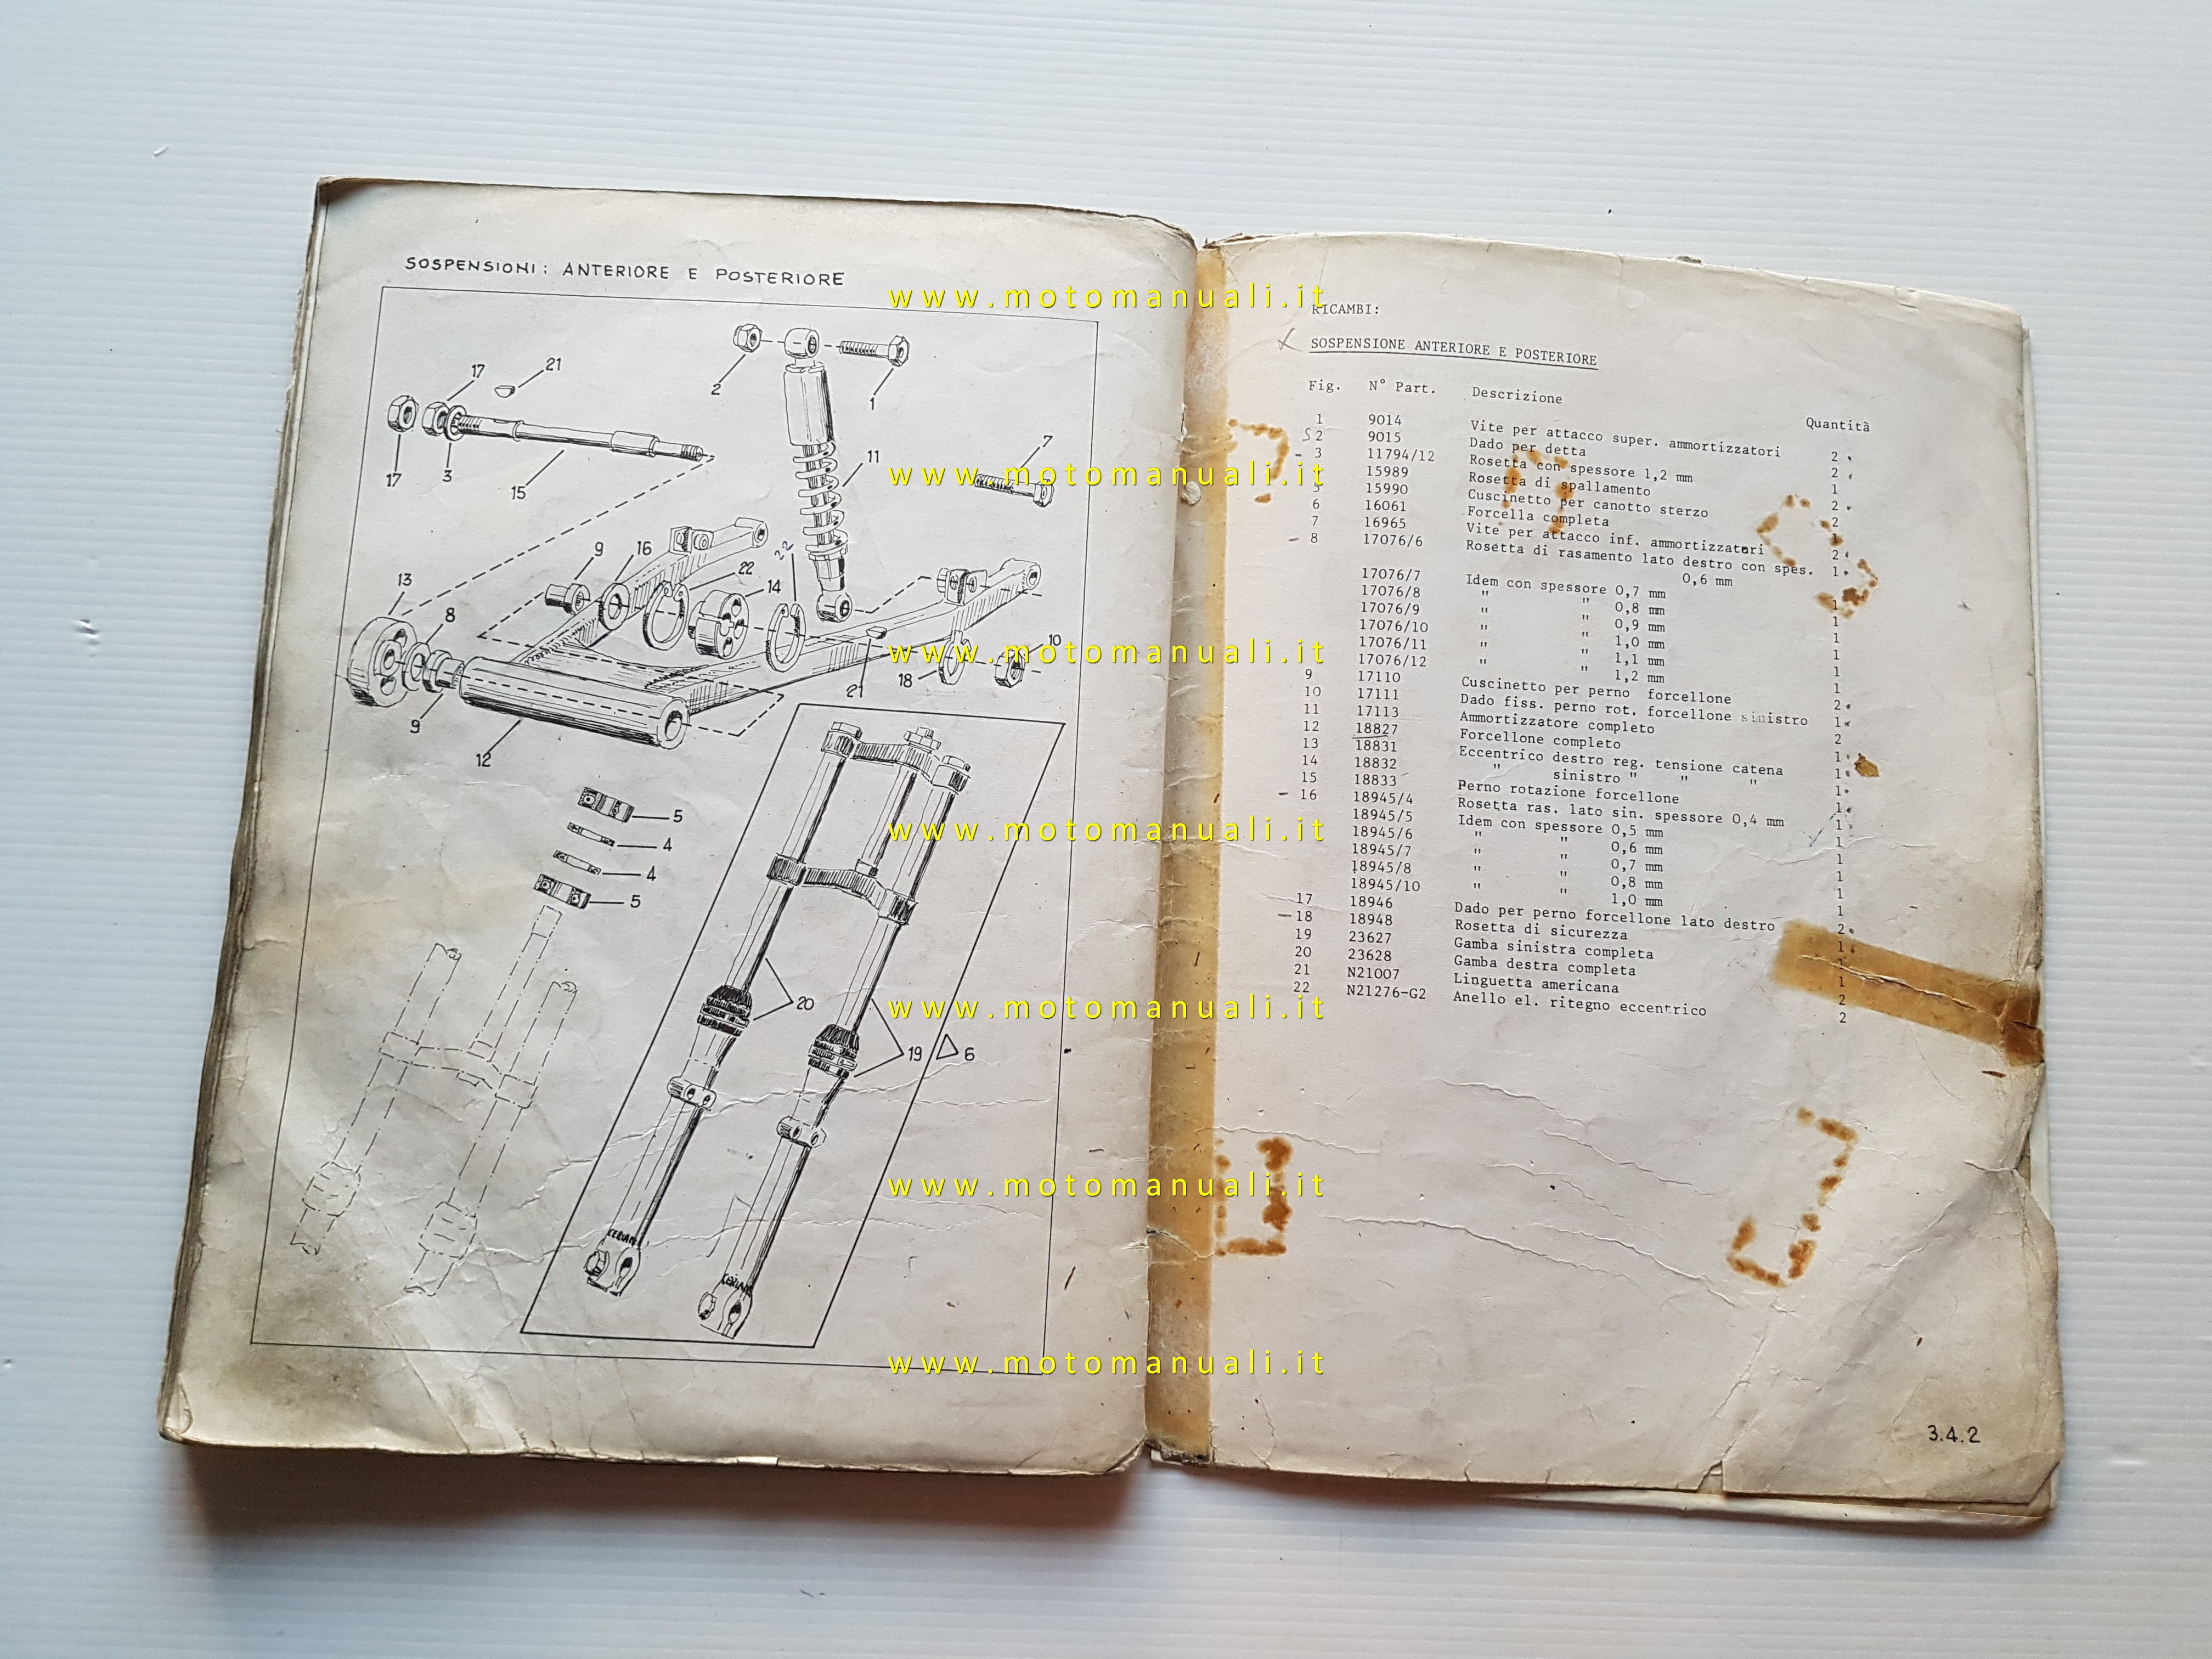 SOSPENSIONI: ANTERIORE E POSTERIORE
2
1
17
21
17
3
15
11
7
9
16
22
14
22
13
8
9
12
21
18
10
5
4
4
5
20
19
6
CERIANI
RICAMBI:
SOSPENSIONE ANTERIORE E POSTERIORE
Fig. N° Part. Descrizione Quantità
1 9014 Vite per attacco super. ammortizzatori 2
2 9015 Dado per detta 2
3 11794/12 Rosetta con spessore 1,2 mm 1
15989 Rosetta di spallamento 2
5 15990 Cuscinetto per canotto sterzo 2
6 16061 Forcella completa 1
7 16965 Vite per attacco inf. ammortizzatori 2
8 17076/6 Rosetta di rasamento lato destro con spes. 1
0,6 mm
17076/7 Idem con spessore 0,7 mm 1
17076/8 " " 0,8 mm 1
17076/9 " " 0,9 mm 1
17076/10 " " 1,0 mm 1
17076/11 " " 1,1 mm 1
17076/12 " " 1,2 mm 1
9 17110 Cuscinetto per perno forcellone 2
10 17111 Dado fiss. perno rot. forcellone sinistro 1
11 17113 Ammortizzatore completo 2
12 18827 Forcellone completo 1
13 18831 Eccentrico destro reg. tensione catena 1
14 18832 " sinistro " " " 1
15 18833 Perno rotazione forcellone 1
16 18945/4 Rosetta ras. lato sin. spessore 0,4 mm 1
18945/5 Idem con spessore 0,5 mm 1
18945/6 " " 0,6 mm 1
18945/7 " " 0,7 mm 1
18945/8 " " 0,8 mm 1
18945/10 " " 1,0 mm 1
17 18946 Dado per perno forcellone lato destro 2
18 18948 Rosetta di sicurezza 1
19 23627 Gamba sinistra completa 1
20 23628 Gamba destra completa 1
21 N21007 Linguetta americana 2
22 N21276-G2 Anello el. ritegno eccentrico 2
3.4.2
www.motomanuali.it
www.motomanuali.it
www.motomanuali.it
www.motomanuali.it
www.motomanuali.it
www.motomanuali.it
www.motomanuali.it